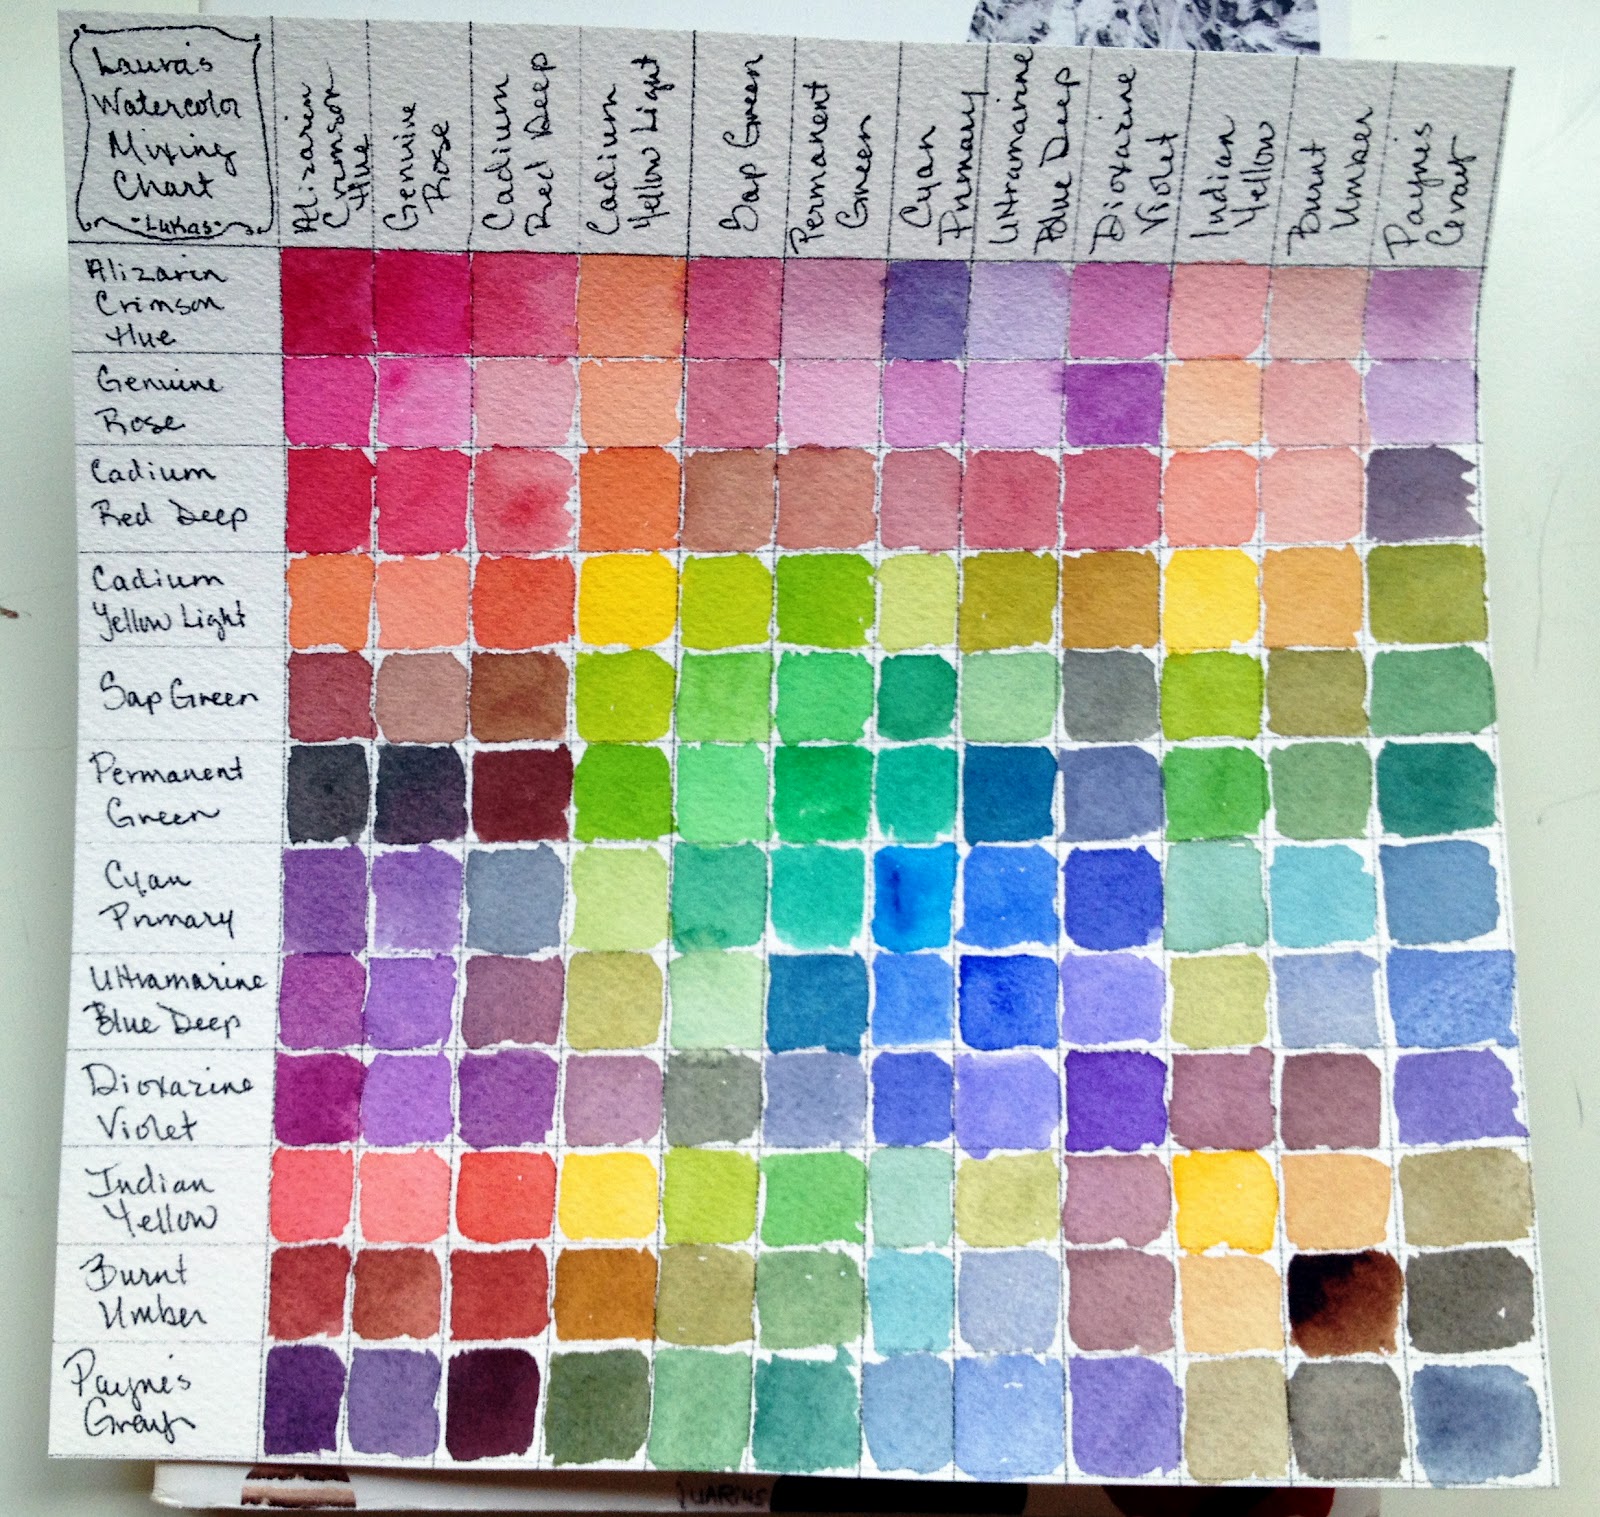 Laura's
Watercolor
Mixing
Chart
-Lukas-
Alizarin
Crimson
Hue
Genuine
Rose
Cadium
Red Deep
Cadium
Yellow Light
Sap Green
Permanent
Green
Cyan
Primary
Ultramarine
Blue Deep
Dioxarine
Violet
Indian
Yellow
Burnt
Umber
Payne's
Gray
Alizarin
Crimson
Hue
Genuine
Rose
Cadium
Red Deep
Cadium
Yellow Light
Sap Green
Permanent
Green
Cyan
Primary
Ultramarine
Blue Deep
Dioxarine
Violet
Indian
Yellow
Burnt
Umber
Payne's
Gray